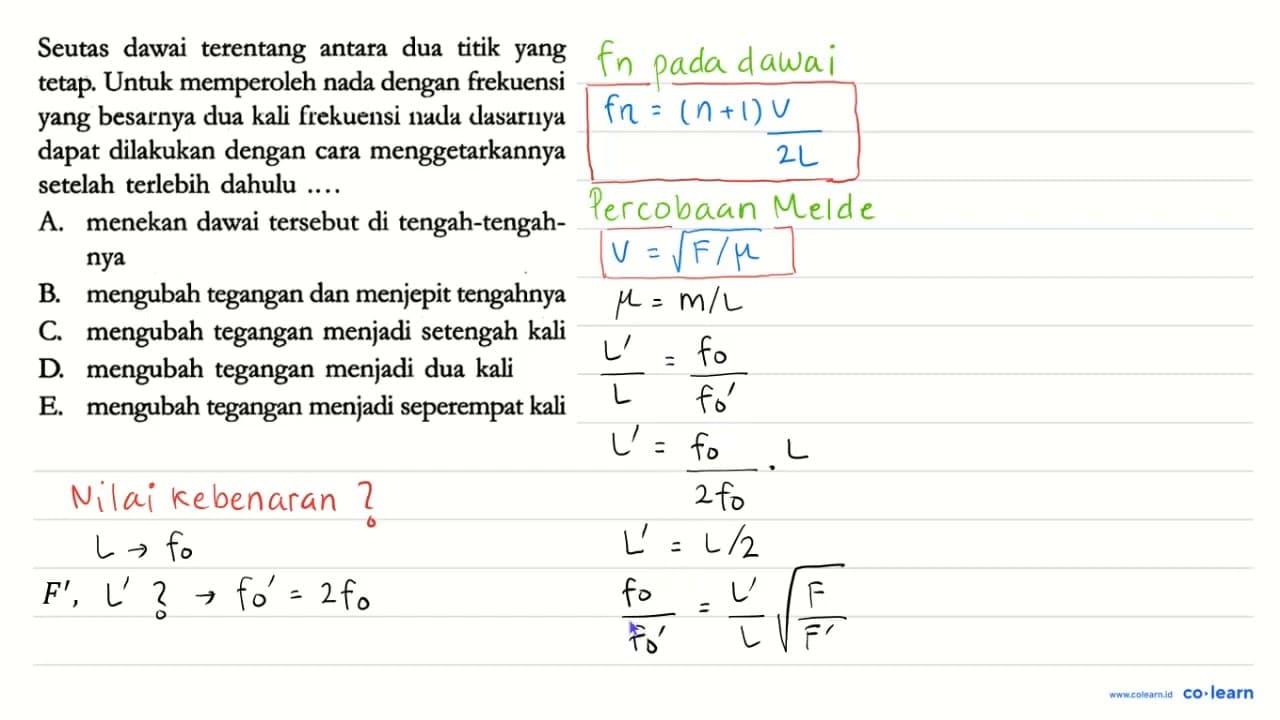 Seutas dawai terentang antara dua titik yang
tetap. Untuk memperoleh nada dengan frekuensi
yang besarnya dua kali frekuensi nada dasarnya
dapat dilakukan dengan cara menggetarkannya
setelah terlebih dahulu ....
A. menekan dawai tersebut di tengah-tengah-
nya
B. mengubah tegangan dan menjepit tengahnya
C. mengubah tegangan menjadi setengah kali
D. mengubah tegangan menjadi dua kali
E. mengubah tegangan menjadi seperempat kali
Nilai kebenaran ?
L → f₀
F', L' ? → f₀' = 2f₀
fn pada dawai
fn = (n+1) V / 2L
Percobaan Melde
V = √F/μ
μ = m/L
L'/L = f₀/f₀'
L' = f₀/2f₀ . L
L' = L/2
f₀/f₀' = L'/L √F/F'
www.colearn.id co·learn